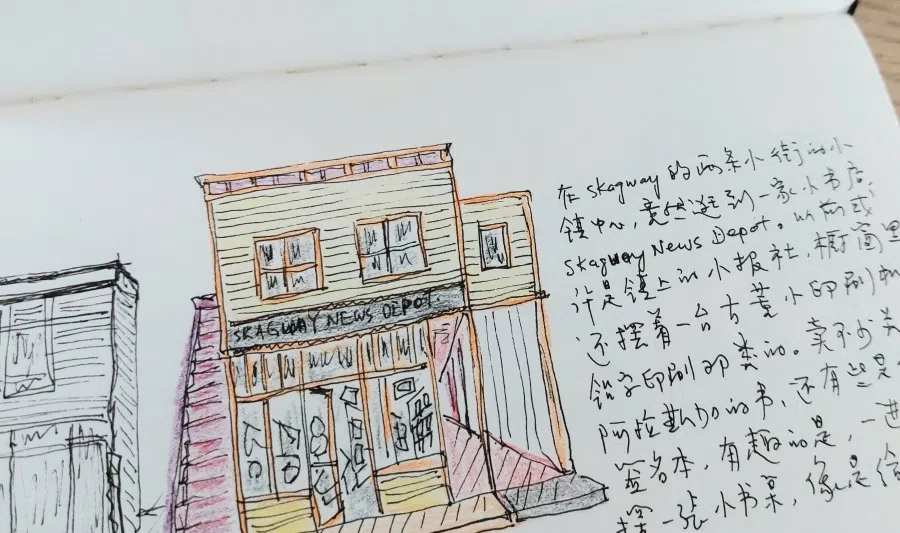 SKAGWAY NEWS DEPOT.
在 skagway 的两条小街的小
镇中心，竟然逛到一家小书店，
skagway News Depot。以前或
许是镇上的小报社，橱窗里
还摆着一台古董小印刷机
铅字印刷那类的。卖不少关
阿拉斯加的书，还有些是
签名本，有趣的是，一进
摆一张小书桌，像是给